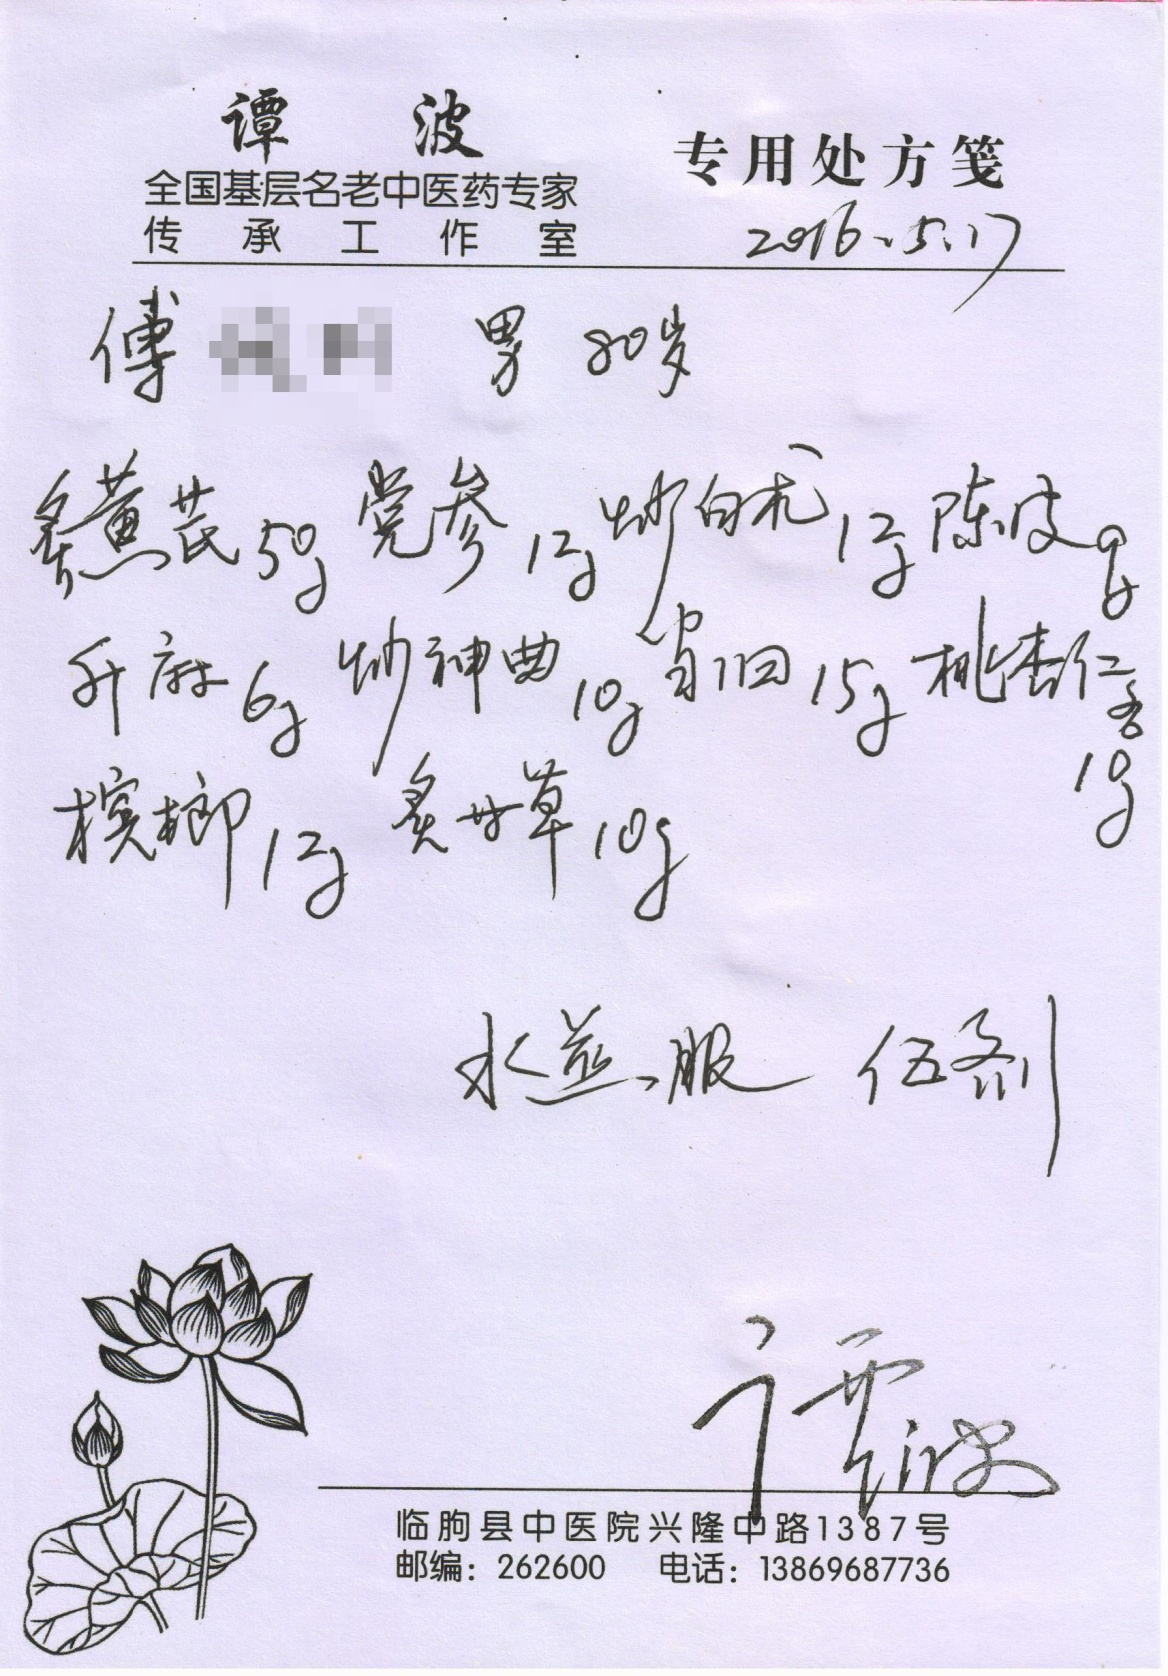 谭 波
全国基层名老中医药专家
传承工作室
专用处方笺
2016.5.17
傅 男 80岁
炙黄芪50g 党参12g 炒白术12g 陈皮9g
升麻6g 炒神曲10g 当归15g 桃杏仁各10g
槟榔12g 炙甘草10g
水煎服 伍剂
谭波
临朐县中医院兴隆中路1387号
邮编：262600 电话：13869687736